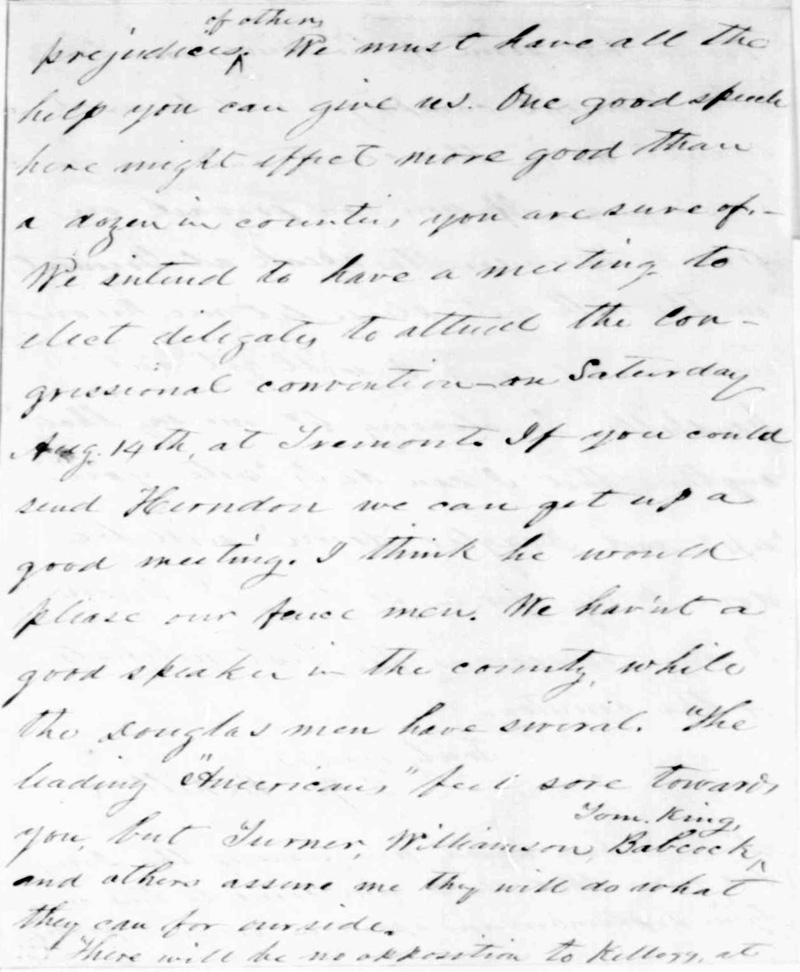 of others
prejudices. ^ We must have all the
help you can give us. One good speech
here might effect more good than
a dozen in counties you are sure of.—
We intend to have a meeting to
elect delegates to attend the Con-
gressional convention on Saturday
Aug. 14th, at Tremont. If you could
send Herndon we can get up a
good meeting. I think he would
please our fence men. We hav'nt a
good speaker in the county, while
the Douglas men have several. The
leading "Americans" feel sore towards
Tom. King,
you, but Turner, Williamson, Babcock, ^
and others assure me they will do what
they can for our side.
There will be no opposition to Kellogg, at